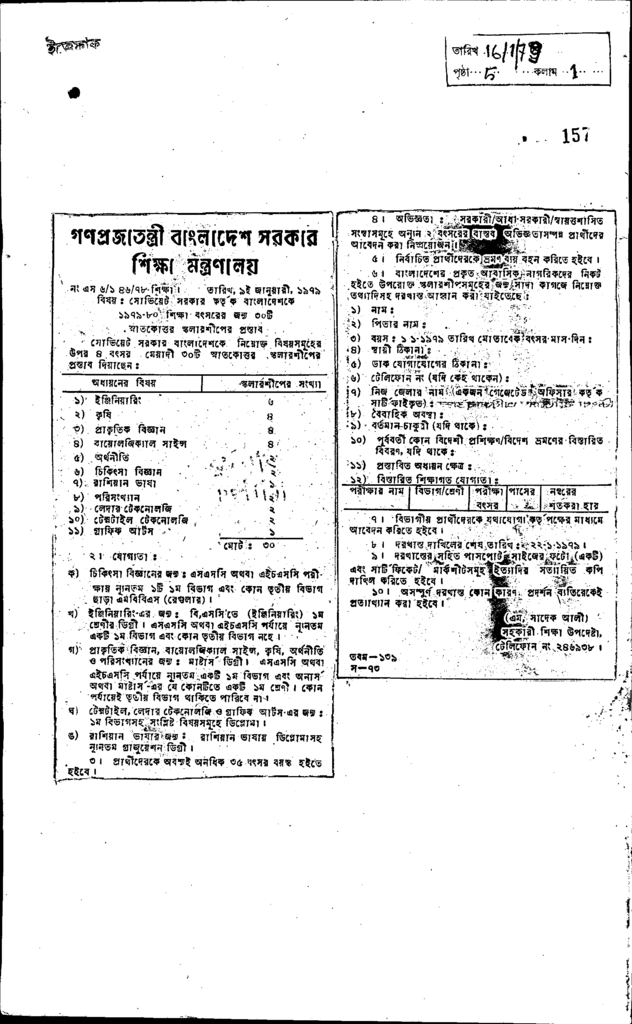 ইত্তেফাক
তারিখ 16/1/79
পৃষ্ঠা 5 কলাম 1
157
গণপ্রজাতন্ত্রী বাংলাদেশ সরকার
শিক্ষা মন্ত্রণালয়
নং এস ৬/১ ৪৬/৭৮-শিক্ষা। তারিখ, ১ই জানুয়ারী, ১৯৭৯
বিষয় : সোভিয়েট সরকার কর্তৃক বাংলাদেশকে
১৯৭৯-৮০ শিক্ষা বৎসরের জন্য ৩০টি
স্নাতকোত্তর স্কলারশীপের প্রস্তাব
সোভিয়েট সরকার বাংলাদেশকে নিম্নোক্ত বিষয়সমূহের
উপর ৪ বৎসর মেয়াদী ৩০টি স্নাতকোত্তর স্কলারশীপের
প্রস্তাব দিয়াছেন :
অধ্যয়নের বিষয় স্কলারশীপের সংখ্যা
১) ইঞ্জিনিয়ারিং ৬
২) কৃষি ৪
৩) প্রাকৃতিক বিজ্ঞান ৪
৪) বায়োলজিক্যাল সাইন্স ৪
৫) অর্থনীতি ২
৬) চিকিৎসা বিজ্ঞান ২
৭) রাশিয়ান ভাষা ১
৮) পরিসংখ্যান
৯) লেদার টেকনোলজি ২
১০) টেক্সটাইল টেকনোলজি ২
১১) গ্রাফিক আর্টস ১
মোট : ৩০
২। যোগ্যতা :
ক) চিকিৎসা বিজ্ঞানের জন্য : এসএসসি অথবা এইচএসসি পরী-
ক্ষায় ন্যূনতম ১টি ১ম বিভাগ এবং কোন তৃতীয় বিভাগ
ছাড়া এমবিবিএস (রেগুলার)।
খ) ইঞ্জিনিয়ারিং-এর জন্য : বি,এসসি'তে (ইঞ্জিনিয়ারিং) ১ম
শ্রেণীর ডিগ্রী। এসএসসি অথবা এইচএসসি পর্যায়ে ন্যূনতম
একটি ১ম বিভাগ এবং কোন তৃতীয় বিভাগ নহে।
গ) প্রাকৃতিক বিজ্ঞান, বায়োলজিক্যাল সাইন্স, কৃষি, অর্থনীতি
ও পরিসংখ্যানের জন্য : মাষ্টার্স ডিগ্রী। এসএসসি অথবা
এইচএসসি পর্যায়ে ন্যূনতম একটি ১ম বিভাগ এবং অনার্স
অথবা মাষ্টার্স-এর যে কোনটিতে একটি ১ম শ্রেণী। কোন
পর্যায়েই তৃতীয় বিভাগ থাকিতে পারিবে না।
ঘ) টেক্সটাইল, লেদার টেকনোলজি ও গ্রাফিক আর্টস-এর জন্য :
১ম বিভাগসহ সংশ্লিষ্ট বিষয়সমূহে ডিপ্লোমা।
ঙ) রাশিয়ান ভাষার জন্য : রাশিয়ান ভাষায় ডিপ্লোমাসহ
ন্যূনতম গ্রাজুয়েশন ডিগ্রী।
৩। প্রার্থীদেরকে অবশ্যই অনধিক ৩৫ বৎসর বয়স্ক হইতে
হইবে।
৪। অভিজ্ঞতা : সরকারী/আধা-সরকারী/স্বায়ত্তশাসিত
সংস্থাসমূহে অন্যূন ২ বৎসরের বাস্তব অভিজ্ঞতাসম্পন্ন প্রার্থীদের
আবেদন করা নিষ্প্রয়োজন।
৫। নির্বাচিত প্রার্থীদেরকে ভ্রমণ ব্যয় বহন করিতে হইবে।
৬। বাংলাদেশের প্রকৃত আবাসিক নাগরিকদের নিকট
হইতে উপরোক্ত স্কলারশীপসমূহের জন্য সাদা কাগজে নিম্নোক্ত
তথ্যাদিসহ দরখাস্ত আহ্বান করা যাইতেছে :
১) নাম :
২) পিতার নাম :
৩) বয়স : ১-১-১৯৭৯ তারিখ মোতাবেক বৎসর মাস-দিন :
৪) স্থায়ী ঠিকানা :
৫) ডাক যোগাযোগের ঠিকানা :
৬) টেলিফোন নং (যদি কেহ থাকেন) :
৭) নিজ জেলার নাম (একজন গেজেটেড অফিসার কর্তৃক
সার্টিফাইকৃত) :
৮) বৈবাহিক অবস্থা :
৯) বর্তমান-চাকুরী (যদি থাকে) :
১০) পূর্ববর্তী কোন বিদেশী প্রশিক্ষণ/বিদেশ ভ্রমণের বিস্তারিত
বিবরণ, যদি থাকে :
১১) প্রস্তাবিত অধ্যয়ন ক্ষেত্র :
১২) বিস্তারিত শিক্ষাগত যোগ্যতা :
পরীক্ষার নাম বিভাগ/শ্রেণী পরীক্ষা পাসের নম্বরের
বৎসর শতকরা হার
৭। বিভাগীয় প্রার্থীদেরকে যথাযোগ্য কর্তৃপক্ষের মাধ্যমে
আবেদন করিতে হইবে।
৮। দরখাস্ত দাখিলের শেষ তারিখ : ২২-১-১৯৭৯।
৯। দরখাস্তের সহিত পাসপোর্ট সাইজের ফটো (একটি)
এবং সার্টিফিকেট/ মার্কশীটসমূহ ইত্যাদির সত্যায়িত কপি
দাখিল করিতে হইবে।
১০। অসম্পূর্ণ দরখাস্ত কোন কারণ প্রদর্শন ব্যতিরেকেই
প্রত্যাখ্যান করা হইবে।
(এম, সাদেক আলী)
সহকারী শিক্ষা উপদেষ্টা,
টেলিফোন নং ২৪৬৯৩৮।
তবম-১৩৯
স-৭৩